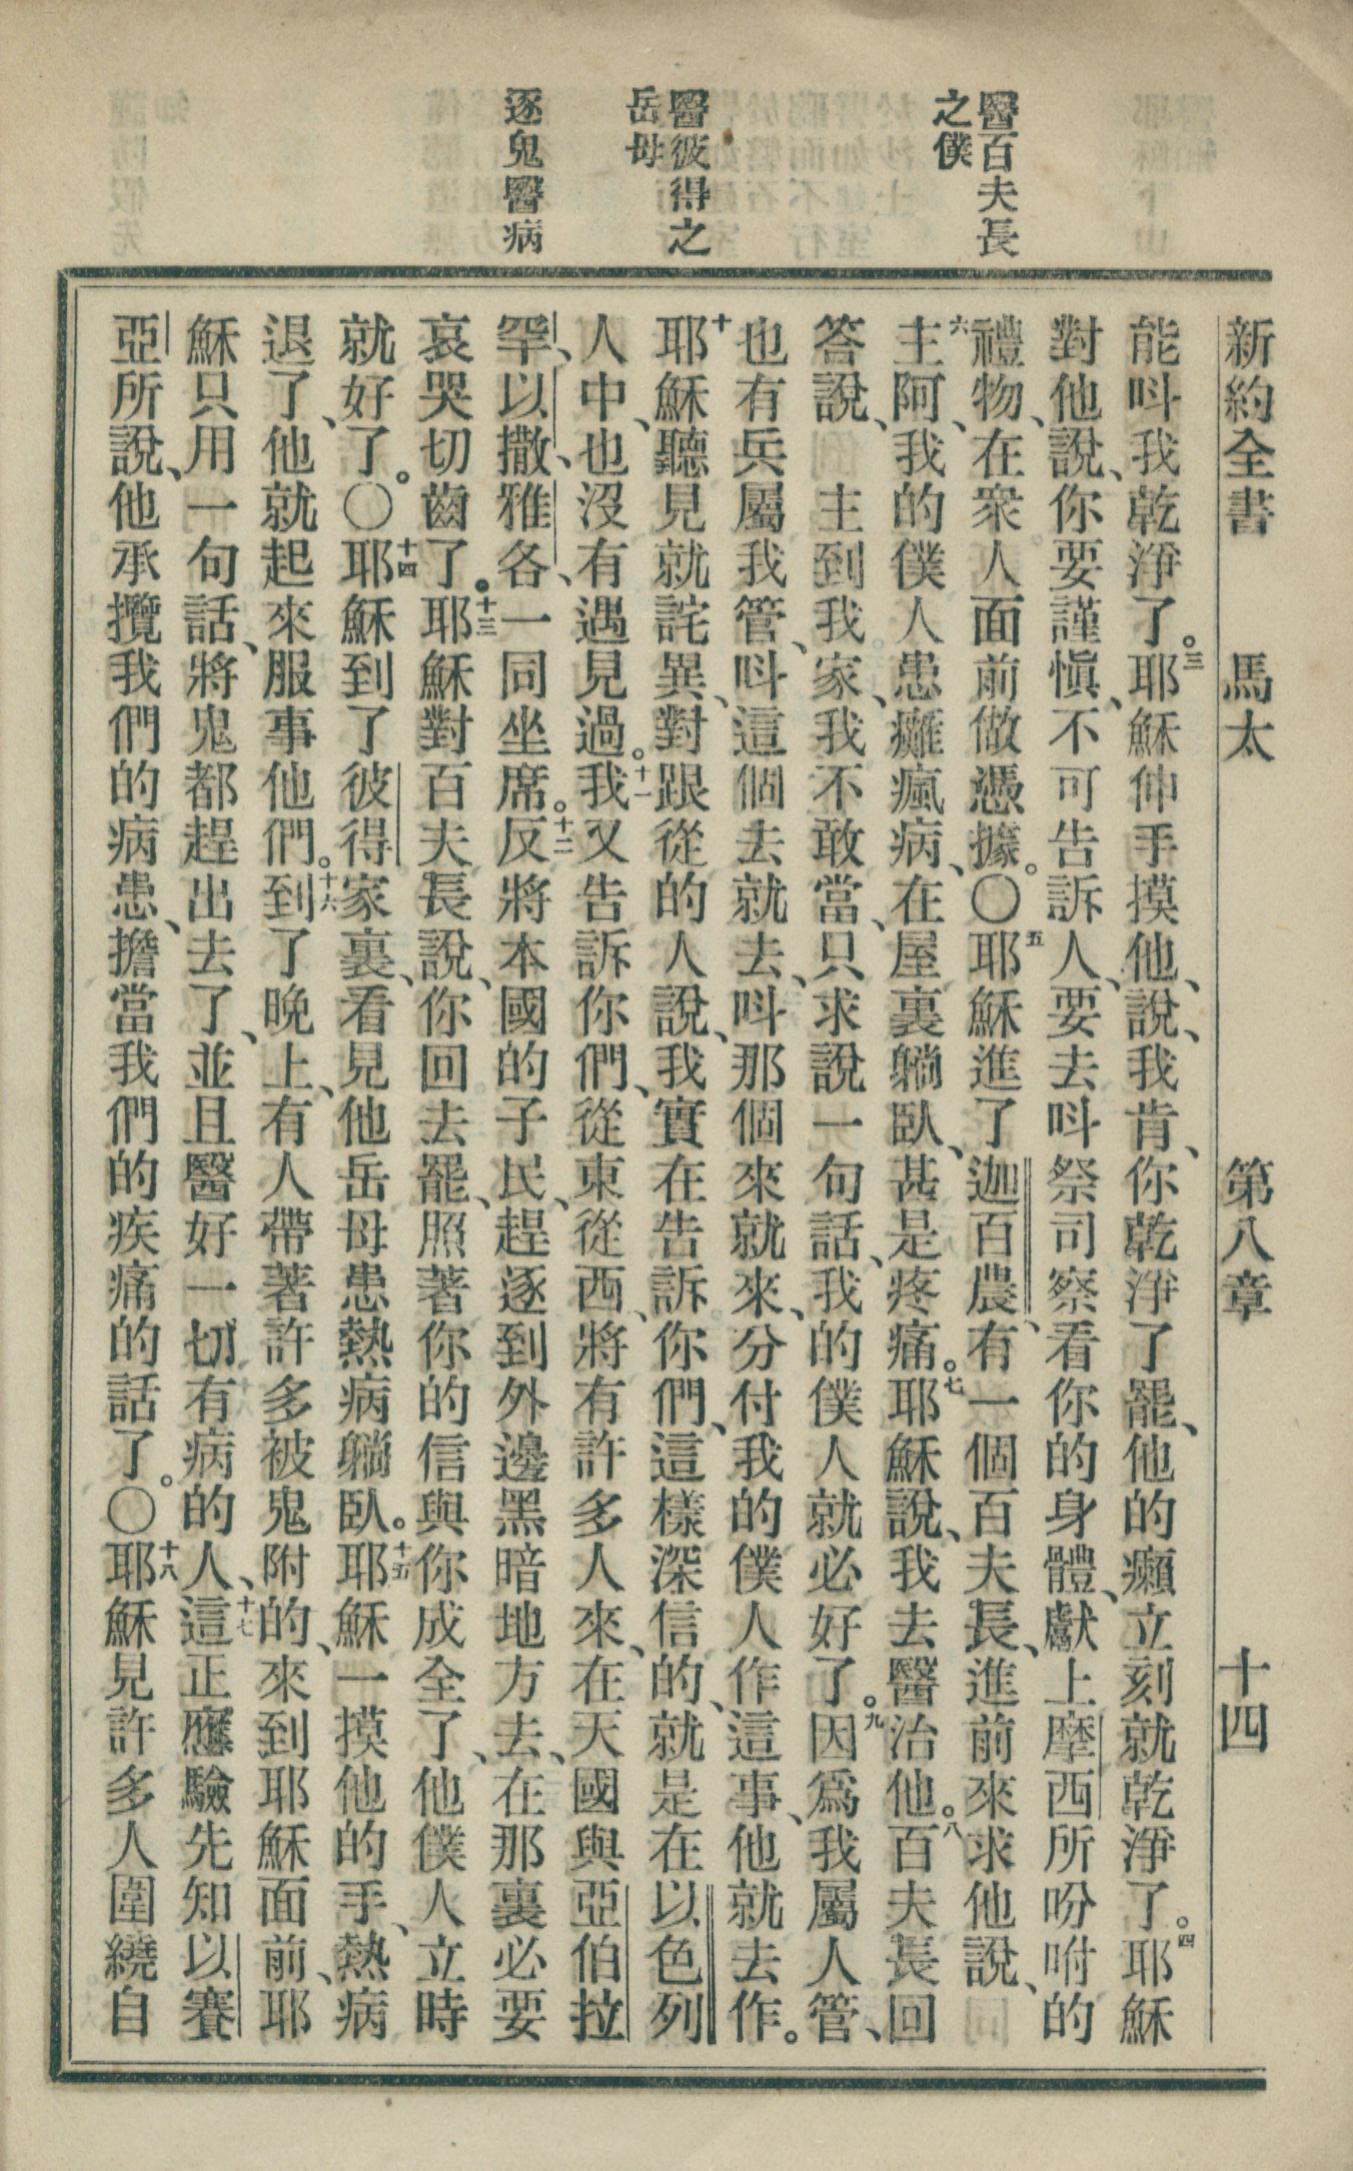 新約全書　馬太　第八章　十四
醫百夫長
之僕
醫彼得之
岳母
逐鬼醫病
能呌我乾淨了。三耶穌伸手摸他、說、我肯、你乾淨了罷、他的癩立刻就乾淨了。四耶穌
對他說、你要謹愼、不可告訴人、要去呌祭司察看你的身體、獻上摩西所吩咐的
禮物、在衆人面前做憑據。〇五耶穌進了迦百農、有一個百夫長、進前來求他說、
六主阿、我的僕人患癱瘋病、在屋裏躺臥、甚是疼痛。七耶穌說、我去醫治他。八百夫長回
答說、主到我家、我不敢當、只求說一句話、我的僕人就必好了。九因爲我屬人管、
也有兵屬我管、呌這個去就去、呌那個來就來、分付我的僕人作這事、他就去作。
十耶穌聽見就詫異、對跟從的人說、我實在告訴你們、這樣深信的、就是在以色列
人中、也沒有遇見過。十一我又告訴你們、從東從西、將有許多人來、在天國與亞伯拉
罕、以撒、雅各、一同坐席。十二反將本國的子民、趕逐到外邊黑暗地方去、在那裏必要
哀哭切齒了。十三耶穌對百夫長說、你回去罷、照著你的信與你成全了、他僕人立時
就好了。〇十四耶穌到了彼得家裏、看見他岳母患熱病躺臥。十五耶穌一摸他的手、熱病
退了、他就起來服事他們。十六到了晚上、有人帶著許多被鬼附的、來到耶穌面前、耶
穌只用一句話、將鬼都趕出去了、並且醫好一切有病的人、十七這正應驗先知以賽
亞所說、他承攬我們的病患、擔當我們的疾痛的話了。〇十八耶穌見許多人圍繞自